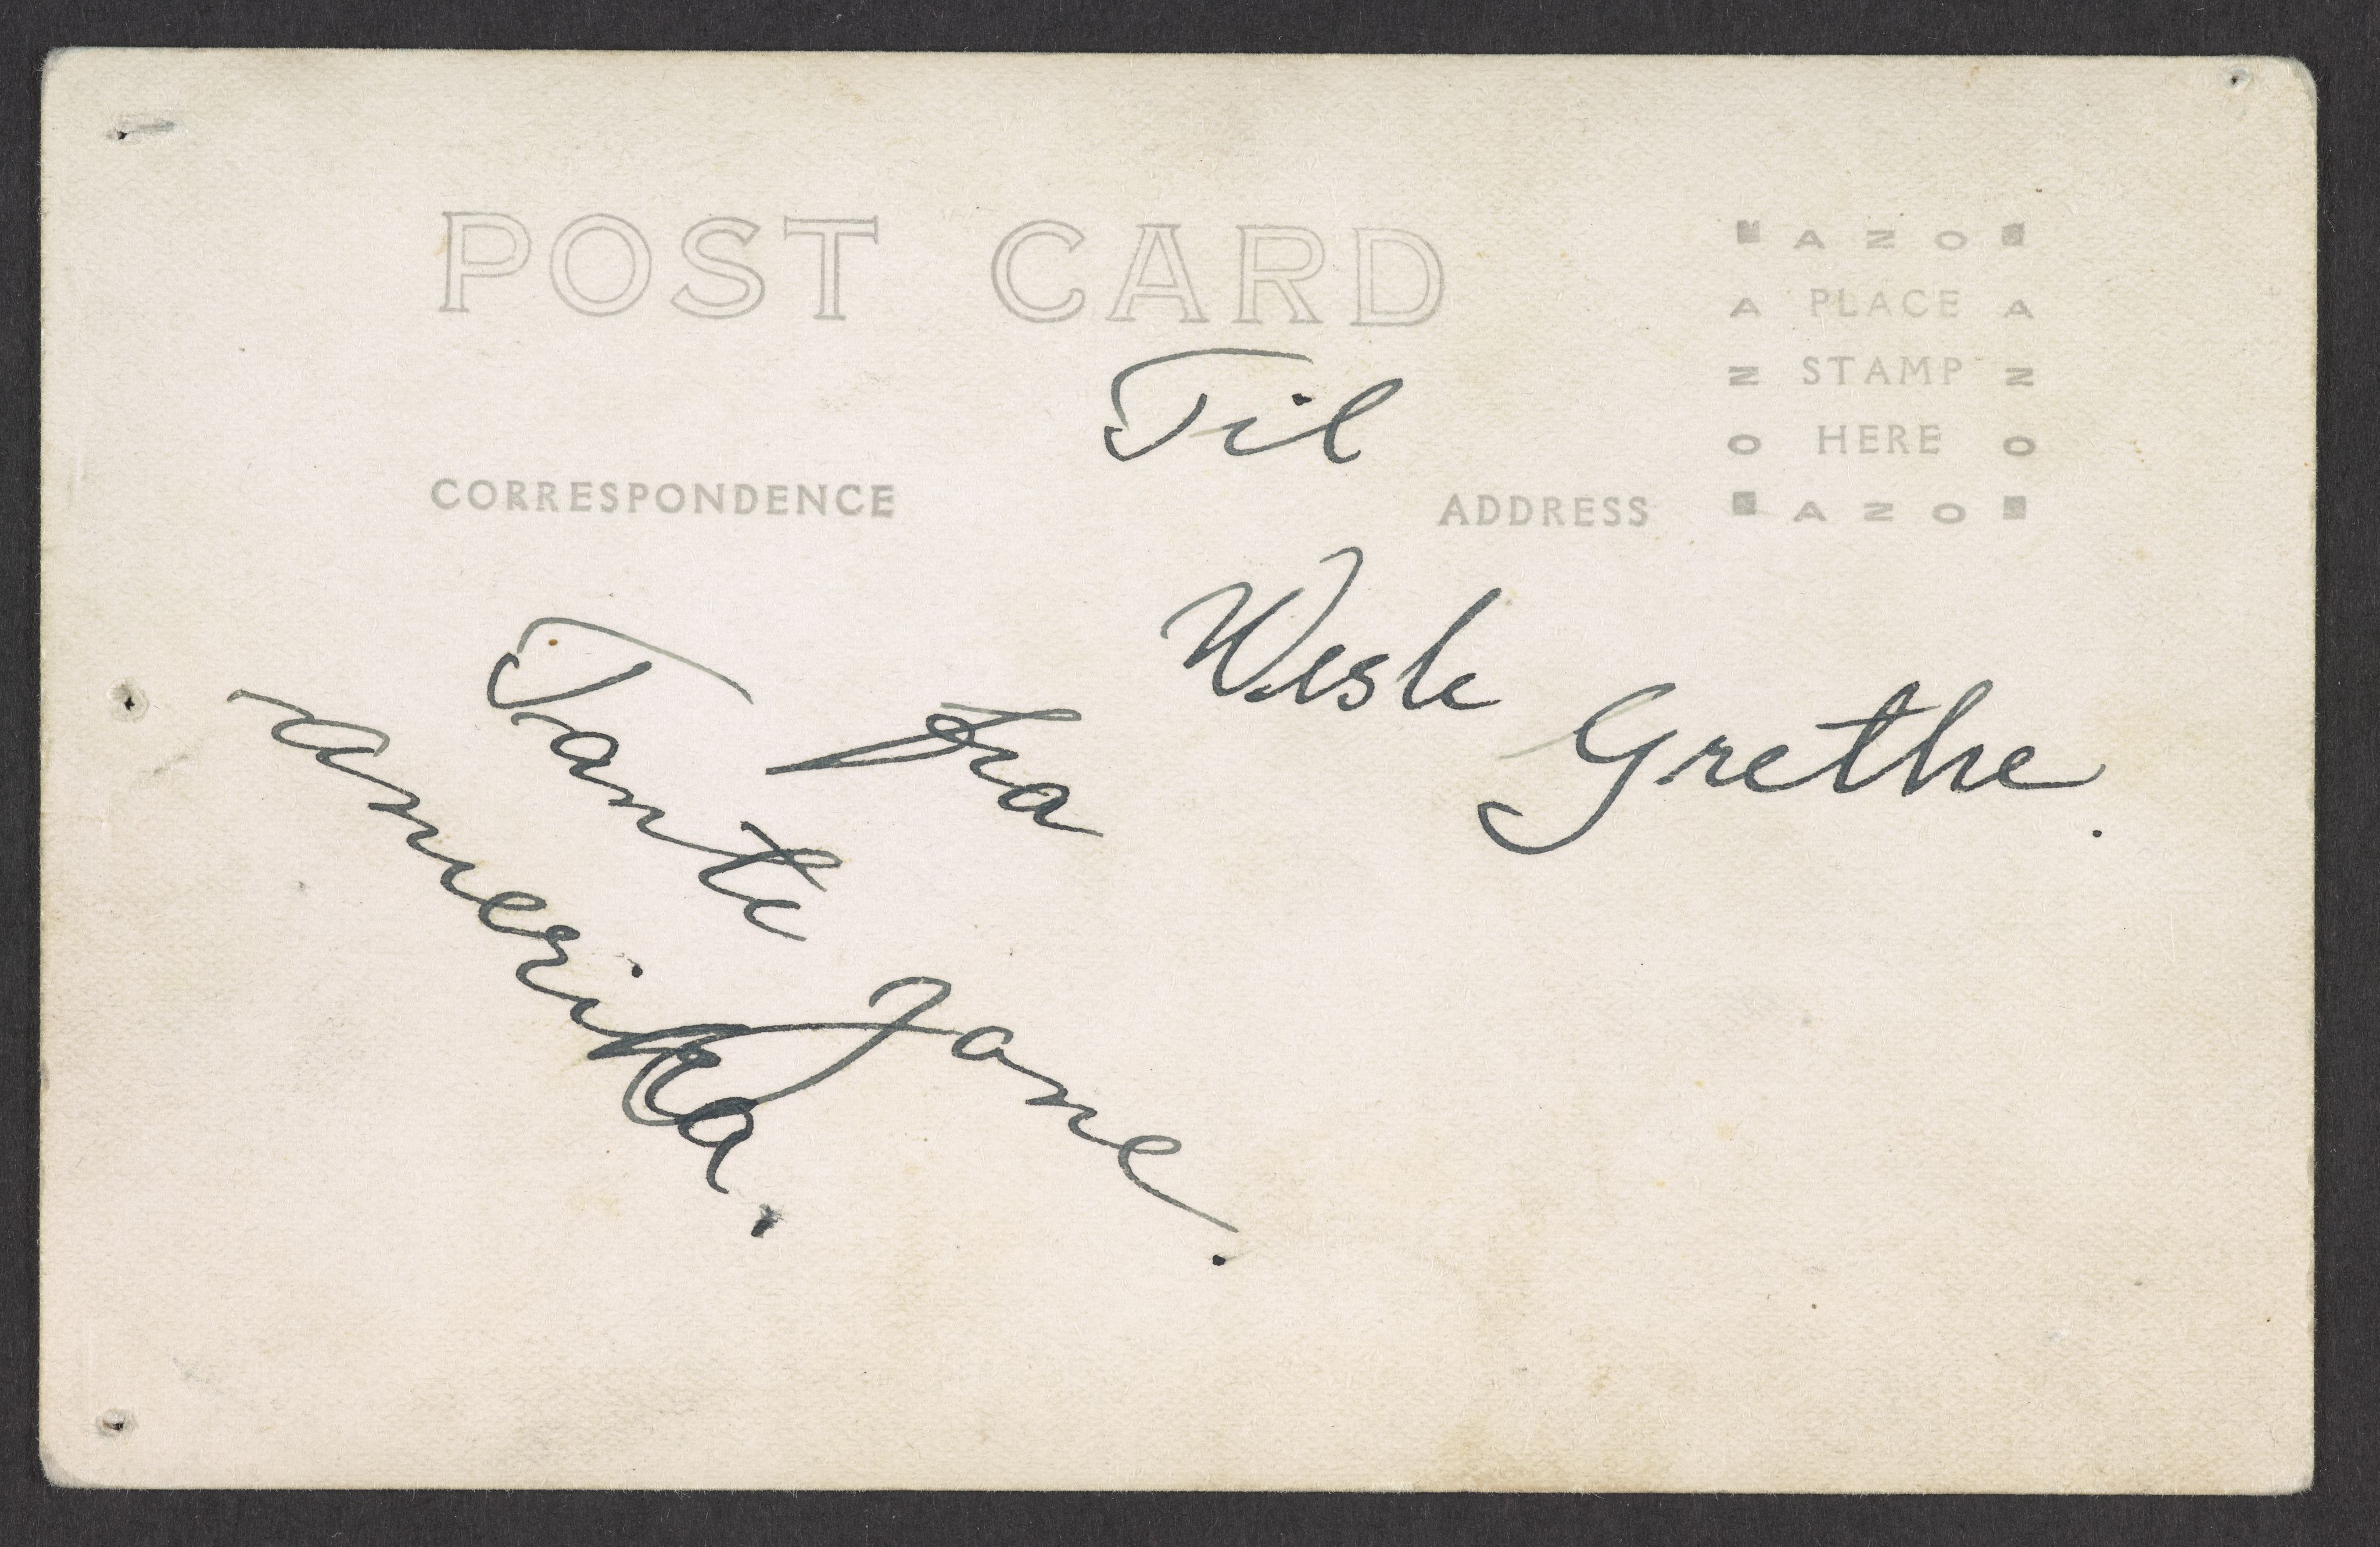 POST CARD
AZO
A PLACE A
Z STAMP Z
O HERE O
AZO
CORRESPONDENCE
ADDRESS
Til
Wesle Grethe.
fra
Tante Jane.
Amerika.